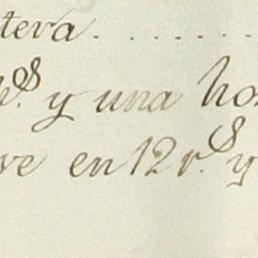 tera.......
y una ho
ve en 12 r.s y